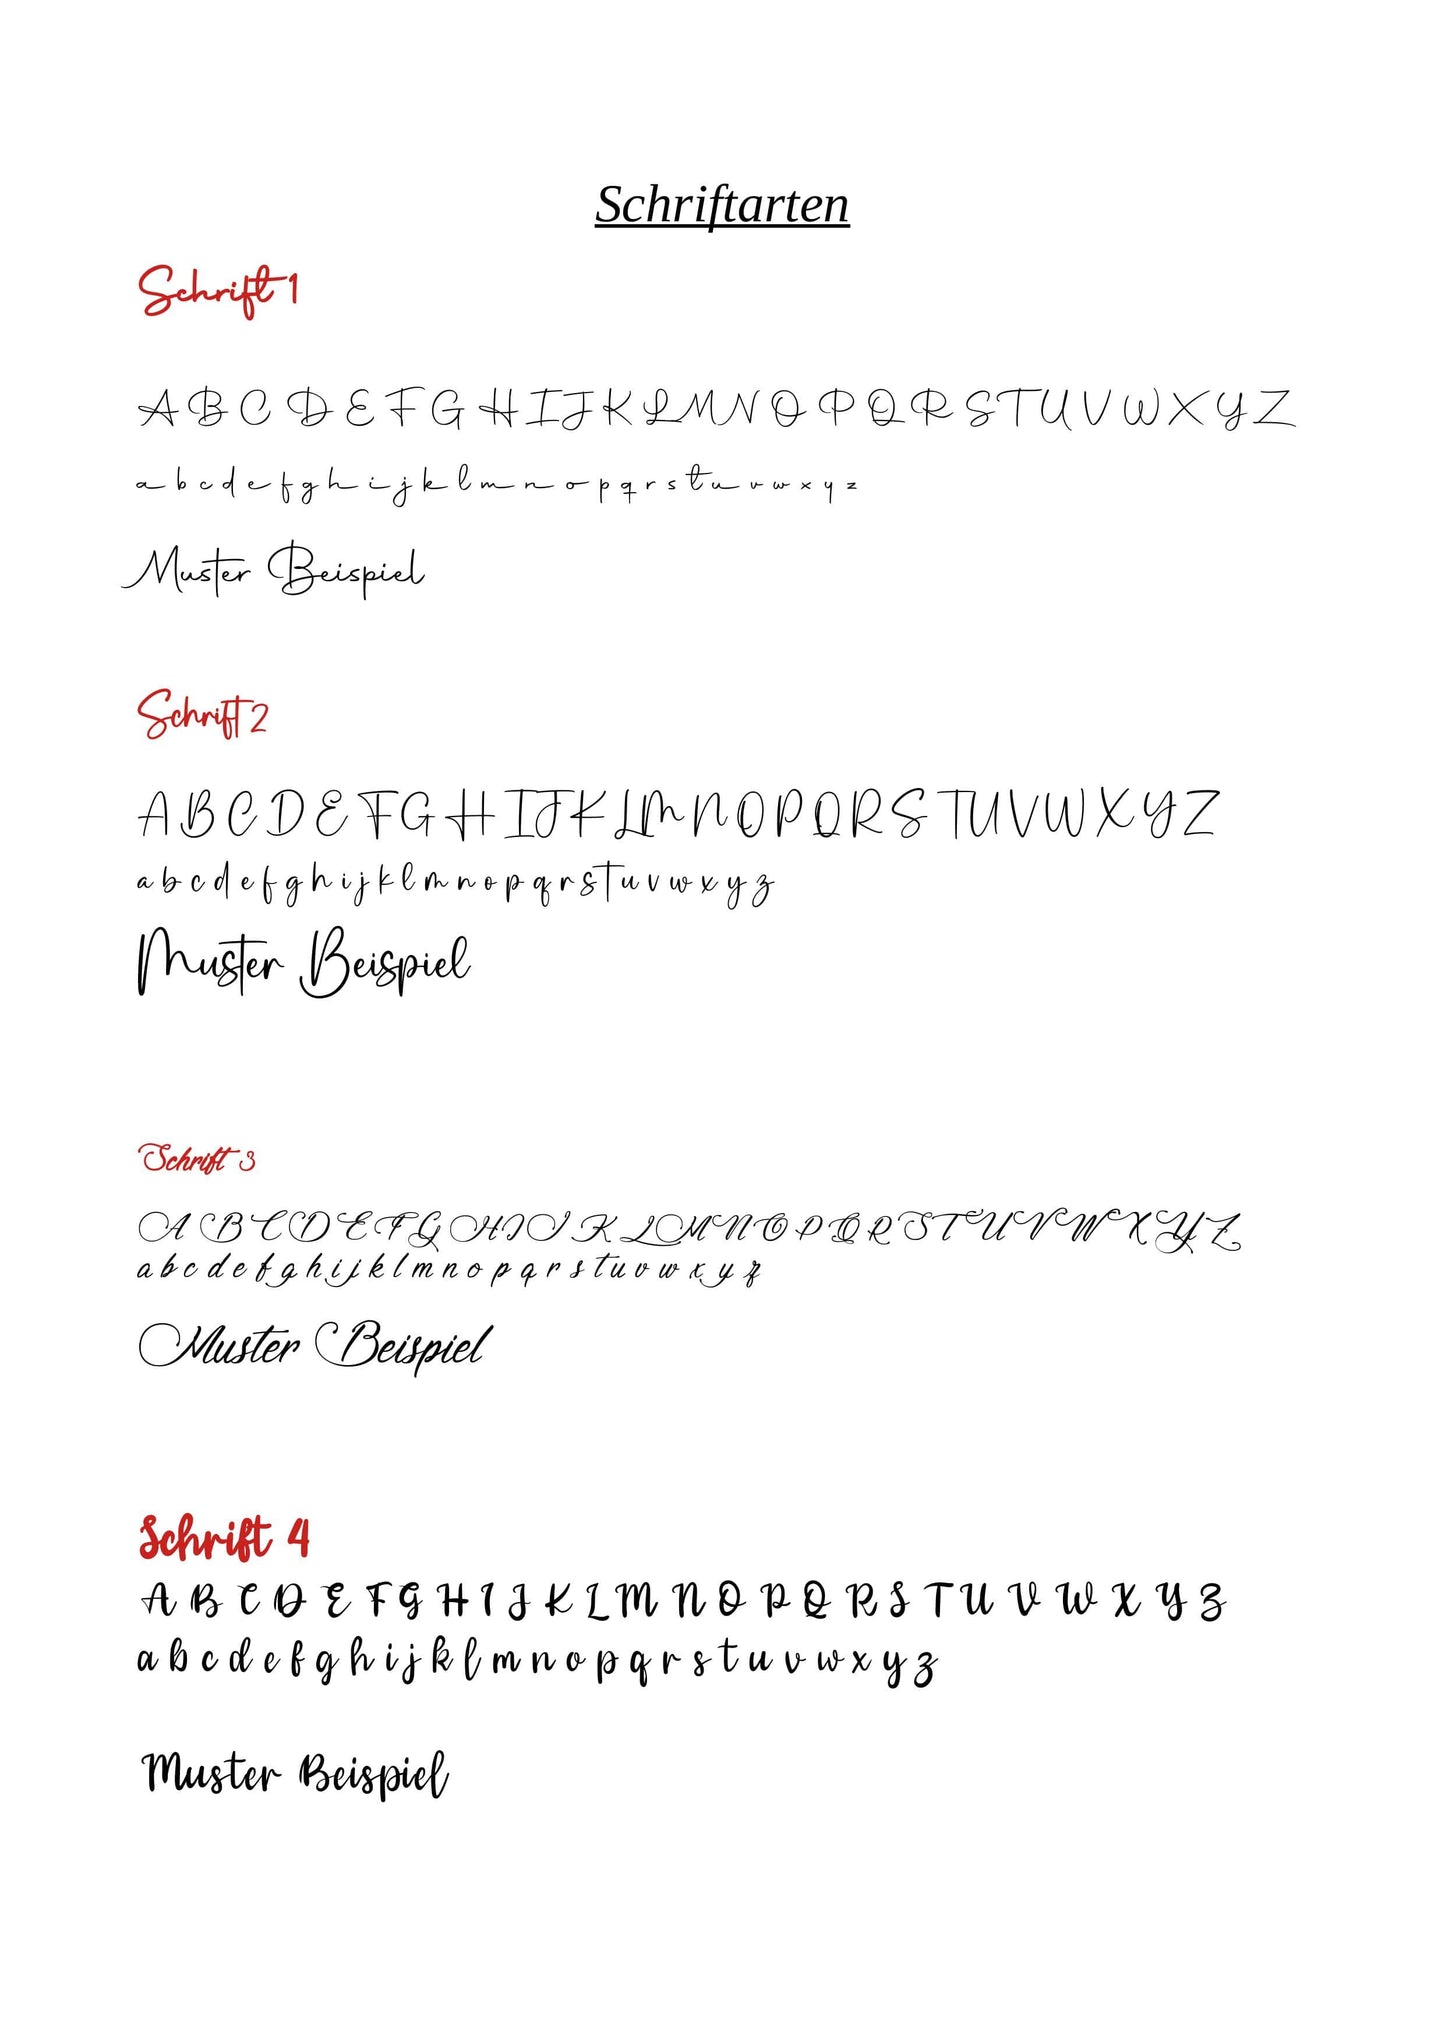 Schriftarten
Schrift 1
A B C D E F G H I J K L M N O P Q R S T U V W X Y Z
a b c d e f g h i j k l m n o p q r s t u v w x y z
Muster Beispiel
Schrift 2
A B C D E F G H I J K L M N O P Q R S T U V W X Y Z
a b c d e f g h i j k l m n o p q r s t u v w x y z
Muster Beispiel
Schrift 3
A B C D E F G H I J K L M N O P Q R S T U V W X Y Z
a b c d e f g h i j k l m n o p q r s t u v w x y z
Muster Beispiel
Schrift 4
A B C D E F G H I J K L M N O P Q R S T U V W X Y Z
a b c d e f g h i j k l m n o p q r s t u v w x y z
Muster Beispiel